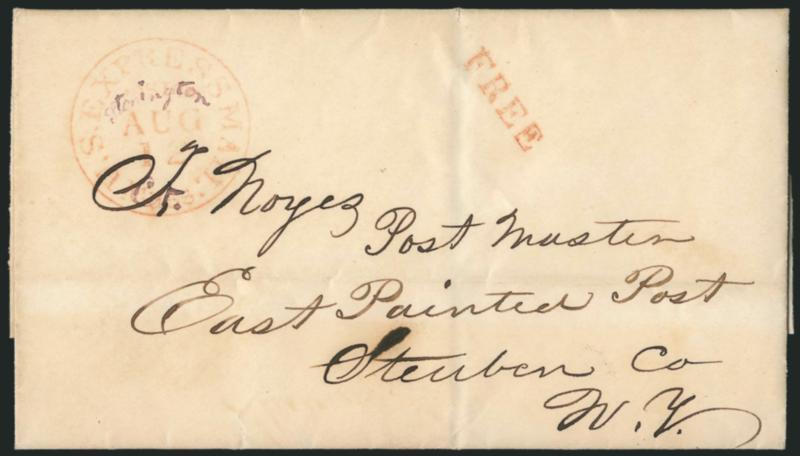 U.S. EXPRESS MAIL.
Stonington
AUG
12
Ct.
FREE
A. Noyes
Post Master
East Painted Post
Steuben Co
N.Y.